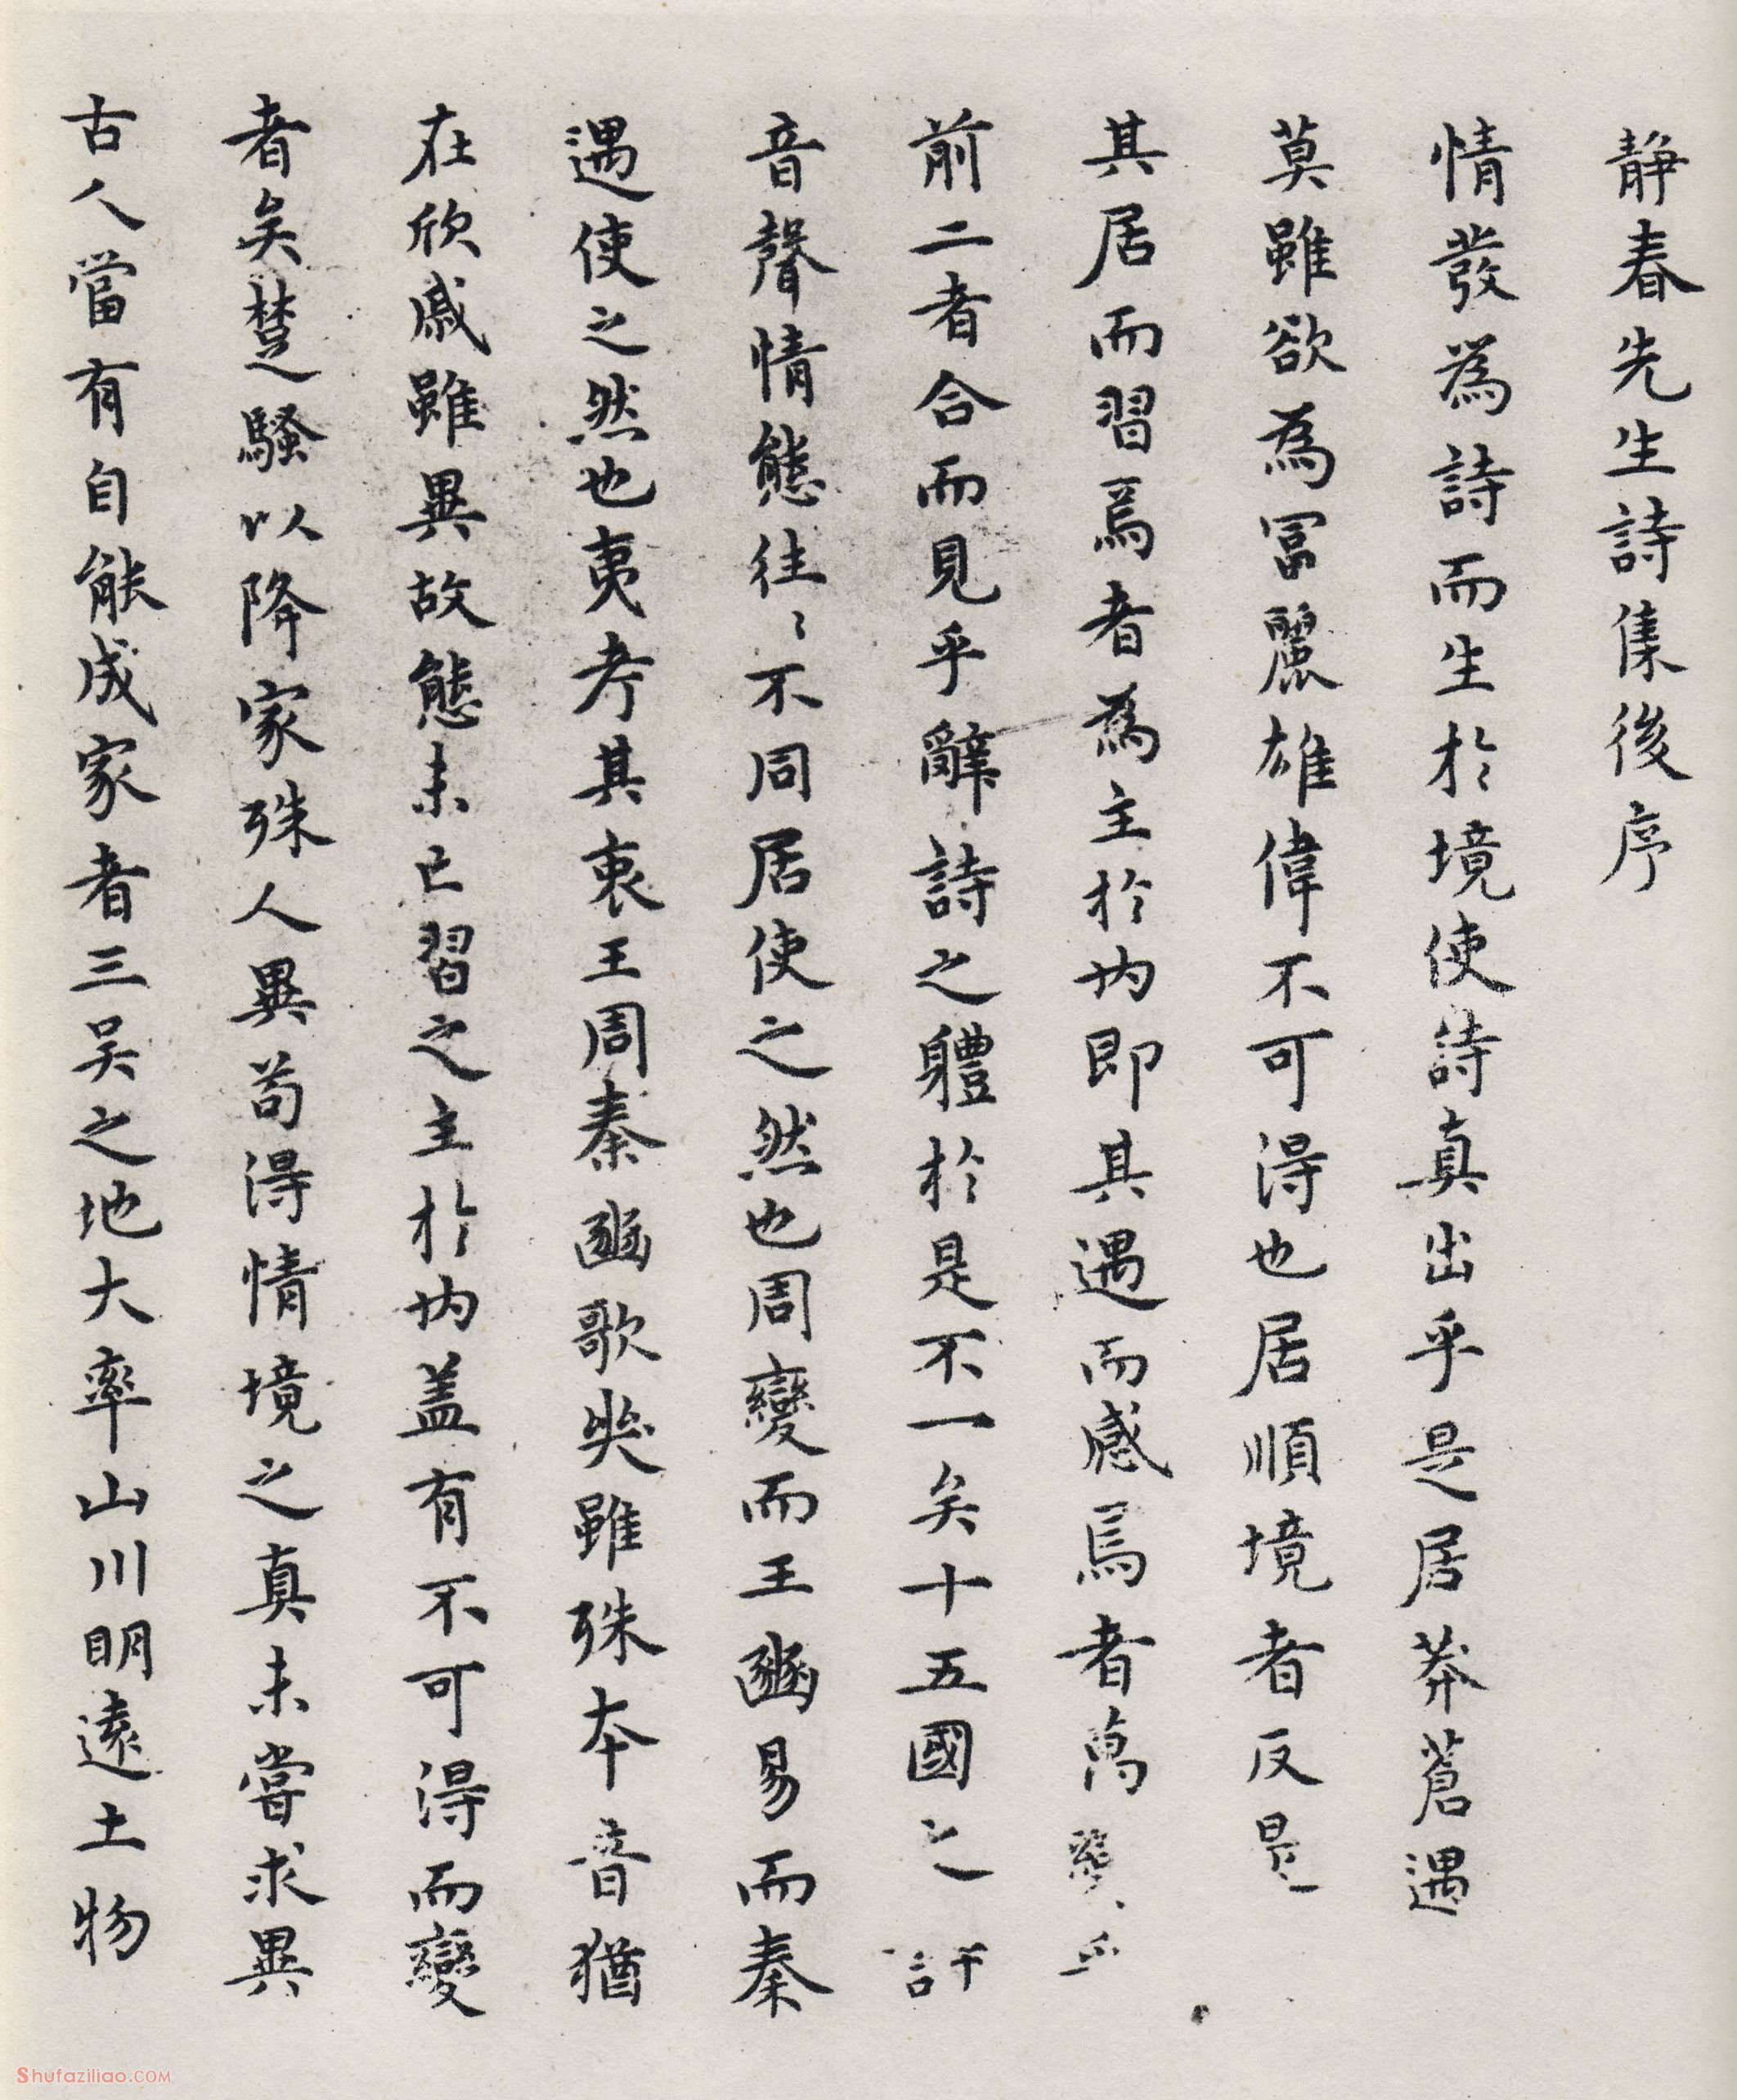 静春先生詩集後序
情發為詩而生於境使詩真出乎是居莽蒼遇
莫雖欲為冨麗雄偉不可得也居順境者反是
其居而習焉者為主於内即其遇而感焉者萬變
前二者合而見乎辭詩之軆於是不一矣十五國之
音聲情態往〻不同居使之然也周變而王豳易而秦
遇使之然也夷考其衷王周秦豳歌哭雖殊本音猶
在欣戚雖異故態未已習之主於内盖有不可得而變
者矣楚騷以降家殊人異苟得情境之真未嘗求異
古人當有自能成家者三吴之地大率山川明遠土物
Shufaziliao.COM